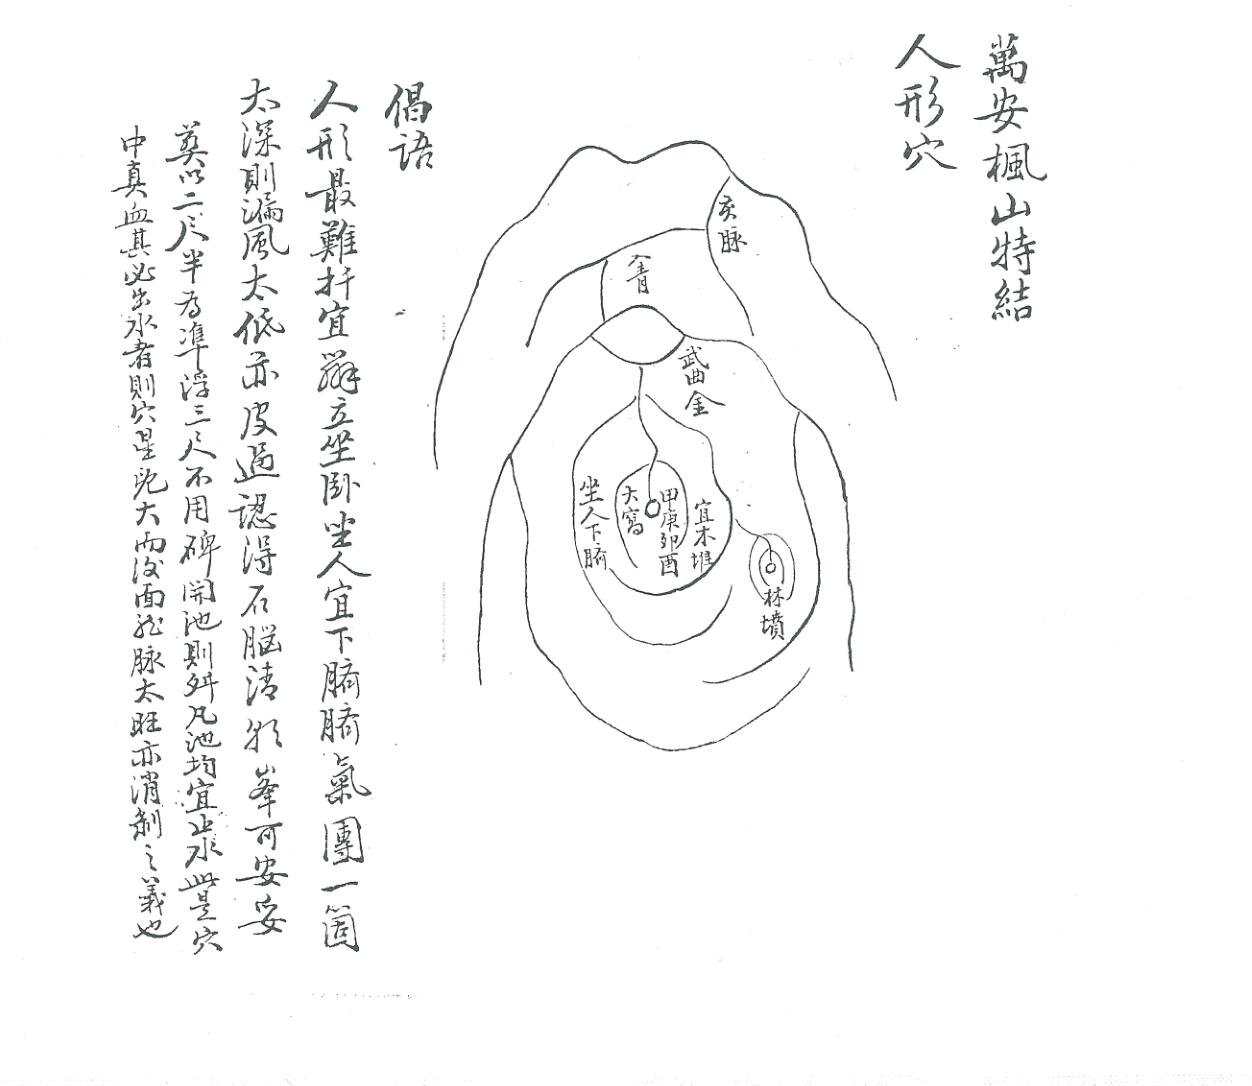 萬安楓山特結
人形穴
亥脉
武曲金
宜木堆
甲庚卯酉
大窩
坐人下臍
林墳
倡語
人形最難扦宜辨立坐卧坐人宜下臍臍氣團一箇
太深則漏風太低亦皮過認得石腦清 峯可安妥
葬以二尺半為準浮三尺不用碑開池則 凡池均宜止水此是穴
中真血其必出水者則穴星 大而後面 脉太旺亦消剝之義也